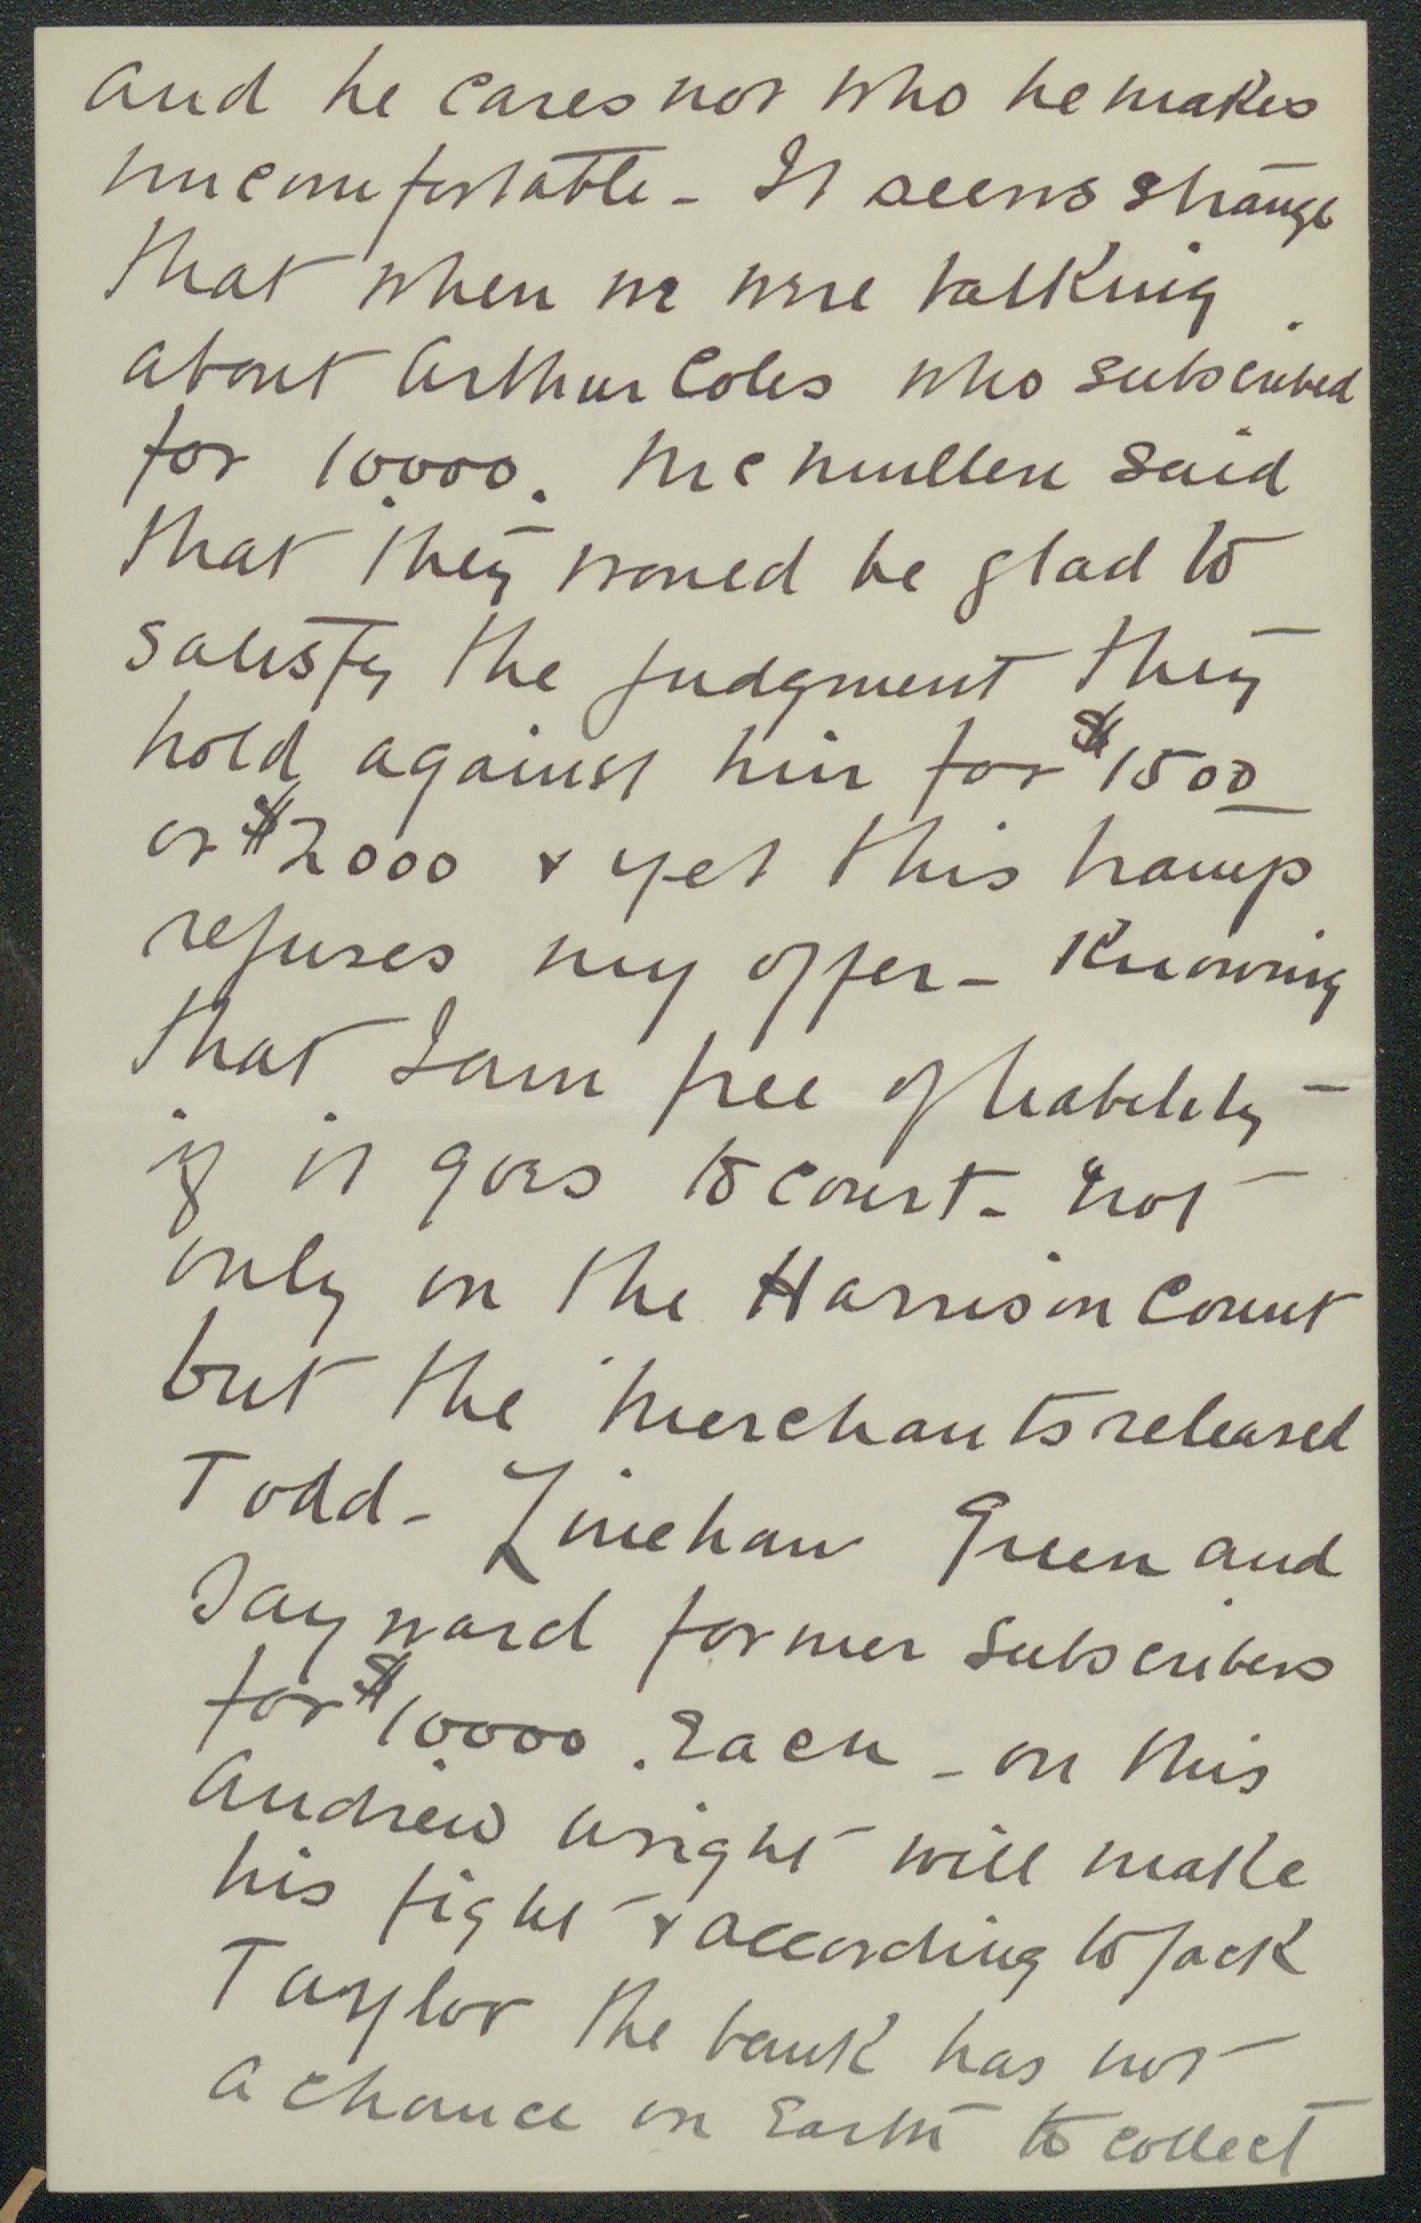 and he cares not who he makes
uncomfortable - It seems strange
that when we were talking
about Arthur Coles who subscribed
for 10000. McMullen said
that they would be glad to
satisfy the judgment they
hold against him for $1500
or $2000 & yet this tramp
refuses my offer - Knowing
that I am free of liability
if it goes to court - not
only on the Harrison Count
but the Merchants released
Todd - Linehan Green and
Jayward former subscribers
for $10000. Each - on this
Andrew Wright will make
his fight & according to Jack
Taylor the bank has not
a chance on Earth to collect